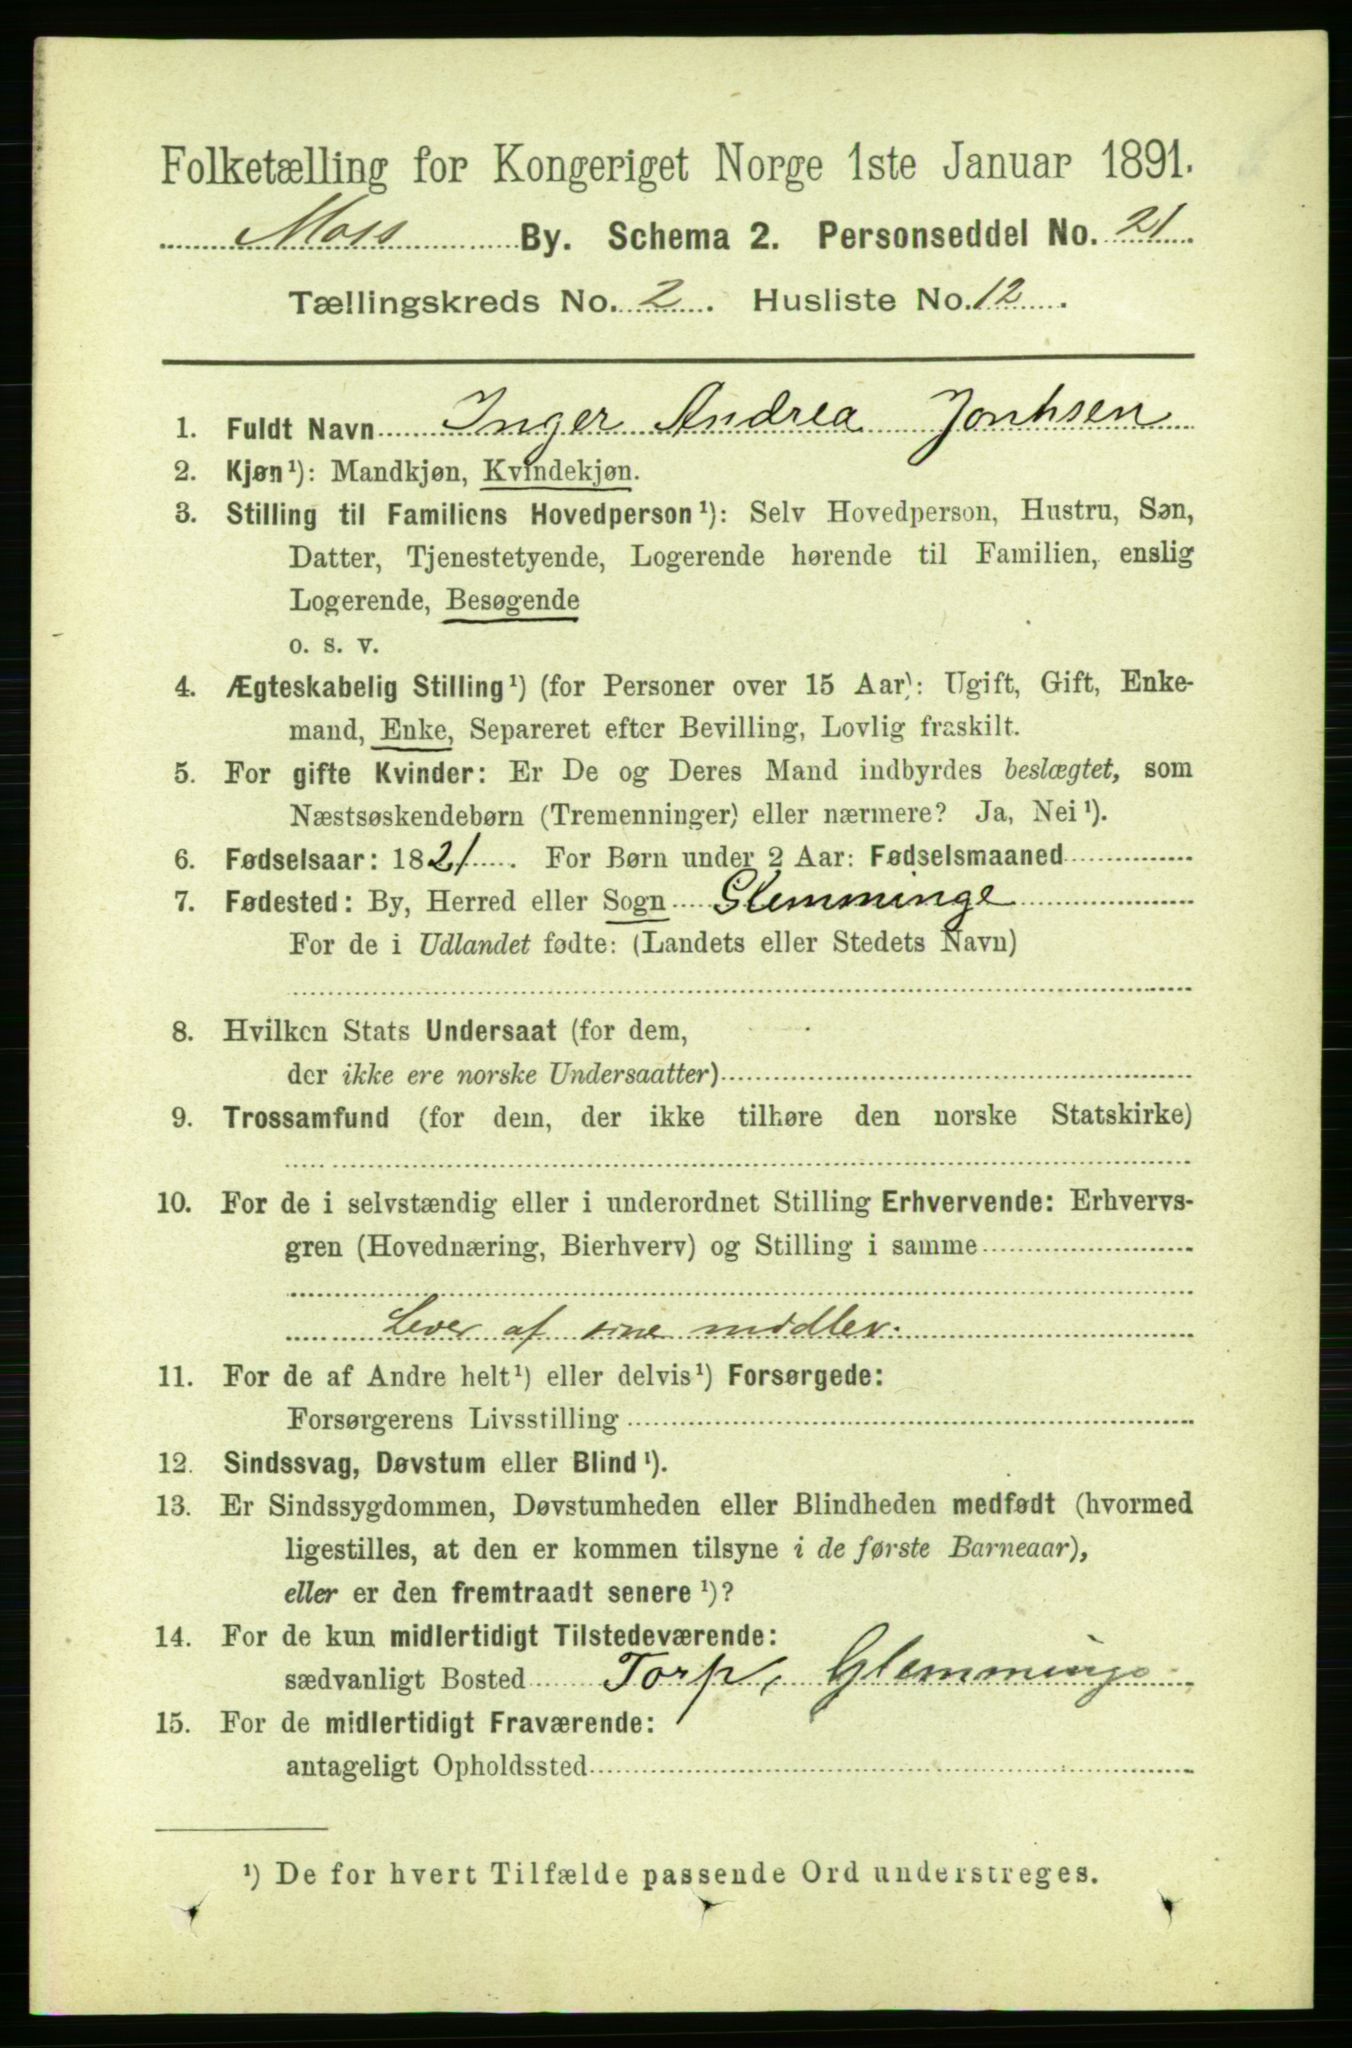 Folketælling for Kongeriget Norge 1ste Januar 1891.
Moss By. Schema 2. Personseddel No. 21
Tællingskreds No. 2. Husliste No. 12.
1. Fuldt Navn Inger Andrea Jonhsen
2. Kjøn¹): Mandkjøn, Kvindekjøn.
3. Stilling til Familiens Hovedperson¹): Selv Hovedperson, Hustru, Søn,
Datter, Tjenestetyende, Logerende hørende til Familien, enslig
Logerende, Besøgende
o. s. v.
4. Ægteskabelig Stilling¹) (for Personer over 15 Aar): Ugift, Gift, Enke-
mand, Enke, Separeret efter Bevilling, Lovlig fraskilt.
5. For gifte Kvinder: Er De og Deres Mand indbyrdes beslægtet, som
Næstsøskendebørn (Tremenninger) eller nærmere? Ja, Nei¹).
6. Fødselsaar: 1821. For Børn under 2 Aar: Fødselsmaaned
7. Fødested: By, Herred eller Sogn Glemminge
For de i Udlandet fødte: (Landets eller Stedets Navn)
8. Hvilken Stats Undersaat (for dem,
der ikke ere norske Undersaatter)
9. Trossamfund (for dem, der ikke tilhøre den norske Statskirke)
10. For de i selvstændig eller i underordnet Stilling Erhvervende: Erhvervs-
gren (Hovednæring, Bierhverv) og Stilling i samme
Lever af sine midler.
11. For de af Andre helt¹) eller delvis¹) Forsørgede:
Forsørgerens Livsstilling
12. Sindssvag, Døvstum eller Blind¹).
13. Er Sindssygdommen, Døvstumheden eller Blindheden medfødt (hvormed
ligestilles, at den er kommen tilsyne i de første Barneaar),
eller er den fremtraadt senere¹)?
14. For de kun midlertidigt Tilstedeværende:
sædvanligt Bosted Torp, Glemminge
15. For de midlertidigt Fraværende:
antageligt Opholdssted
¹) De for hvert Tilfælde passende Ord understreges.